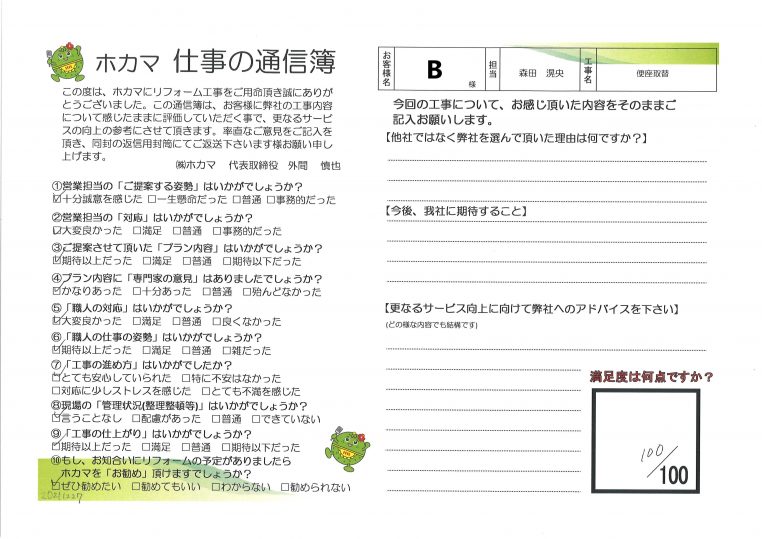 ホカマ 仕事の通信簿
この度は、ホカマにリフォーム工事をご用命頂き誠にありが
とうございました。この通信簿は、お客様に弊社の工事内容
について感じたままに評価していただく事で、更なるサービ
スの向上の参考にさせて頂きます。率直なご意見をご記入を
頂き、同封の返信用封筒にてご返送下さいます様お願い申し
上げます。
㈱ホカマ 代表取締役 外間 慎也
①営業担当の「ご提案する姿勢」はいかがでしょうか?
☑十分誠意を感じた □一生懸命だった □普通 □事務的だった
②営業担当の「対応」はいかがでしょうか?
☑大変良かった □満足 □普通 □事務的だった
③ご提案させて頂いた「プラン内容」はいかがでしょうか?
☑期待以上だった □満足 □普通 □期待以下だった
④プラン内容に「専門家の意見」はありましたでしょうか?
☑かなりあった □十分あった □普通 □殆んどなかった
⑤「職人の対応」はいかがでしょうか?
☑大変良かった □満足 □普通 □良くなかった
⑥「職人の仕事の姿勢」はいかがでしょうか?
☑期待以上だった □満足 □普通 □雑だった
⑦「工事の進め方」はいかがでしたか?
☑とても安心していられた □特に不安はなかった
□対応に少しストレスを感じた □とても不満を感じた
⑧現場の「管理状況(整理整頓等)」はいかがでしょうか?
☑言うことなし □配慮があった □普通 □できていない
⑨「工事の仕上がり」はいかがでしょうか?
☑期待以上だった □満足 □普通 □期待以下だった
⑩もし、お知合いにリフォームの予定がありましたら
ホカマを「お勧め」頂けますでしょうか?
☑ぜひ勧めたい □勧めてもいい □わからない □勧められない
20211227
お客様名 B 様 担当 森田 滉央 工事名 便座取替
今回の工事について、お感じ頂いた内容をそのままご
記入お願いします。
【他社ではなく弊社を選んで頂いた理由は何ですか?】
【今後、我社に期待すること】
【更なるサービス向上に向けて弊社へのアドバイスを下さい】
(どの様な内容でも結構です)
満足度は何点ですか?
100/100